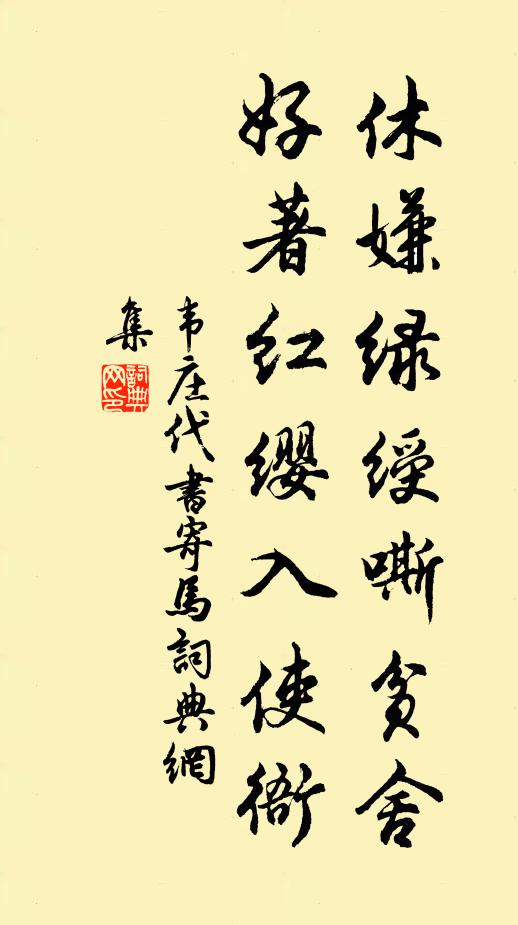 休嫌绿绶嘶贫舍
好著红缨入使衙
韦庄代书寄马詞典網
集
詞典网印